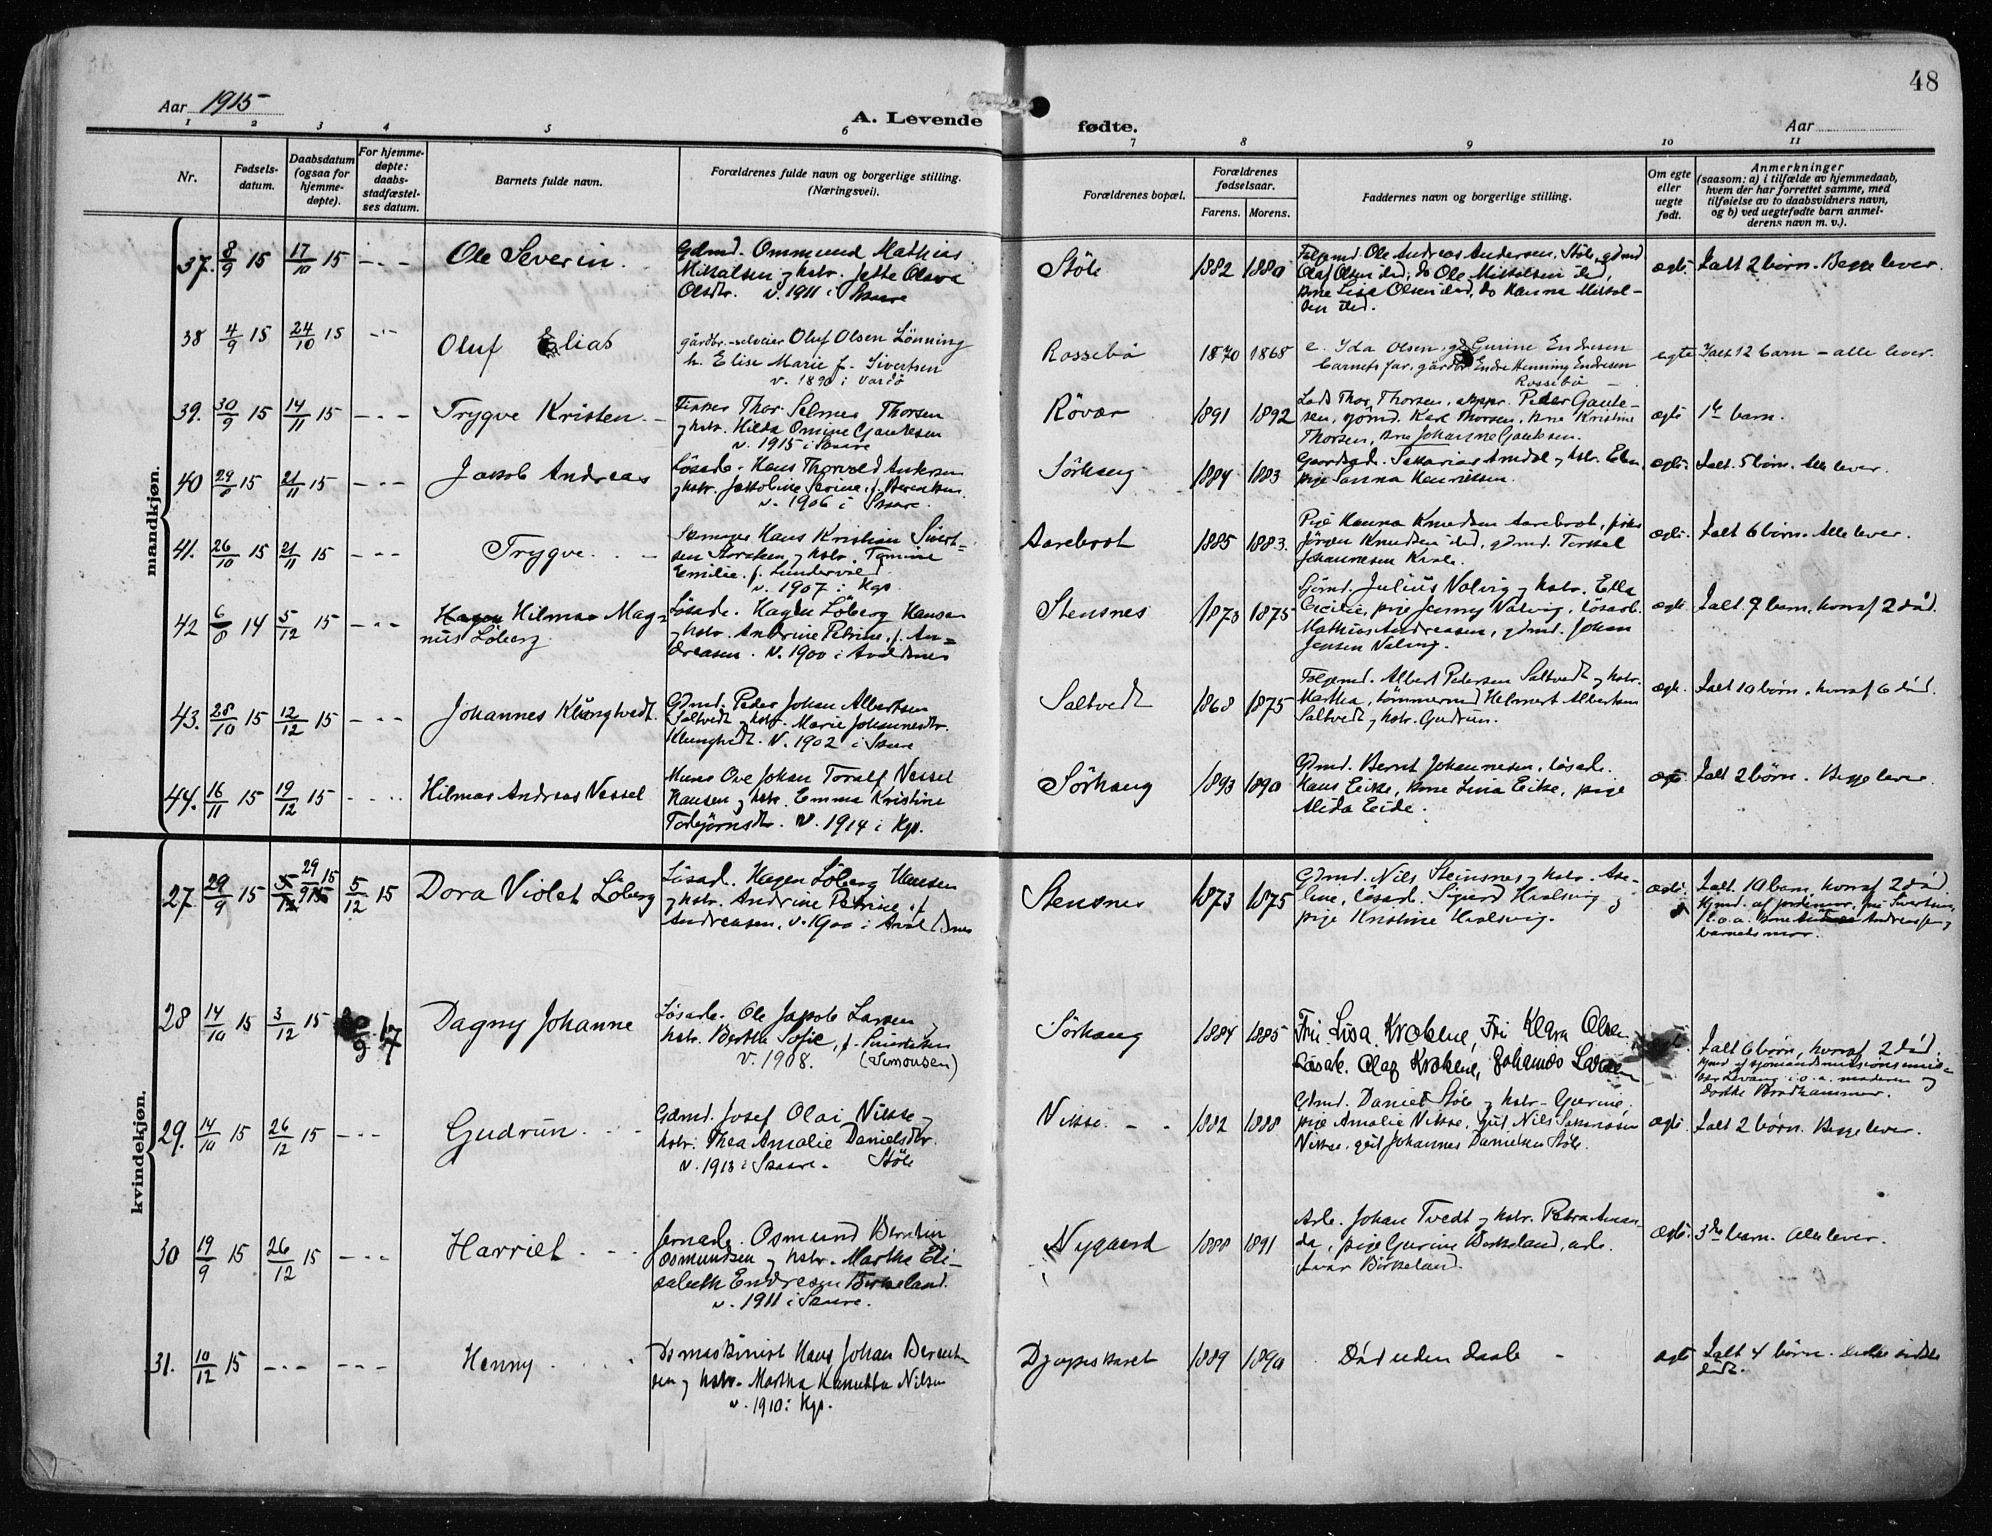 48
Aar 1915
A. Levende fødte.
Aar
1 2 3 4 5 6 7 8 9 10 11
Nr.
Fødsels-
datum.
Daabsdatum
(ogsaa for
hjemme-
døpte).
For hjemme-
døpte:
daabs-
stadfæstel-
ses datum.
Barnets fulde navn.
Forældrenes fulde navn og borgerlige stilling.
(Næringsvei).
Forældrenes bopæl.
Forældrenes
fødselsaar.
Farens. Morens.
Faddernes navn og borgerlige stilling.
Om egte
eller
uegte
født.
Anmerkninger
(saasom: a) i tilfælde av hjemmedaab,
hvem der har forrettet samme, med
tilføielse av to daabsvidners navn,
og b) ved uegtefødte barn anmel-
derens navn m. v.).
mandkjøn.
37. 8/9 15 17/10 15 - - -
Ole Severin
Gdmd. Ommund Mathias
Mikkalsen og hstr. Jette Olava
Olsdtr. v. 1911 i Skaare
Stöle
1882 1880
Folgemd. Ole Andreas Andersen, Stöle, gdmd
Olaf Olsen ibd, do Ole Mikkalsen ibd,
kone Lisa Olsen ibd, do Hanna Mikkal-
sen ibd.
ægte
Ialt 2 börn. Begge lever.
38 4/9 15 24/10 15 - - -
Oluf Elias
gårdbr.-selveier Oluf Olsen Lönning
h. Elise Marie f. Sivertsen
v. 1890 i Vardö
Rossebö
1870 1868
e. Ida Olsen, Gurine Endresen
barnets far, gårdbr Endre Henning Endresen
Rossebö
egte
Ialt 12 barn - alle lever.
39. 30/9 15 14/11 15 - - -
Trygve Kristen
Fisker Thor Selmer Thorsen
og hstr. Hilda Omine Gautesen
v. 1915 i Skaare
Rövær
1891 1892
Lods Thor Thorsen, Peder Gaute-
sen, sjömd. Karl Thorsen, kone Kristine
Thorsen, kone Johanne Gautesen.
ægte
1ste barn.
40 15 21/11 15 - - -
Jakob Andreas
Lösarb. Hans Thorvald Andersen
og hstr. Jakobine Serine, f. Berentsen
v. 1906 i Skaare.
Sörhaug
1884 1883
Gaardarb. Sakarias Amdal og hstr. Elen,
pige Sanna Henriksen.
ægte.
Ialt 5 börn. Alle lever.
41. 26/10 15 21/11 15 - - -
Trygve.
Hans Kristian Sivert-
sen og hstr. Tomine
Emilie. f. Lundervik
v. 1907 i Kgs
Aarebrot
1885 1883.
Pige Hanna Knudsen Aarebrot, fisker
Jörgen Knudsen ibd, gdmd. Torkel
Johannesen
ægte.
Ialt 6 börn. Alle lever.
42 14 5/12 15 - - -
Hagen Hilmar Mag-
nus Löberg
Lösarb. Hagen Löberg Hansen
og hstr. Andrine Petrine, f. An-
dreasen. v. 1900 i Avaldsnes
Stensnes
1873 1875
Sjömd. Julius Valvig og hstr. Ella
Cecilie, pige Jenny Valvig, lösarb.
Mathias Andreasen, gdmd. Johan
Jensen Valvig.
ægte.
Ialt 9 barn, hvoraf 2 död.
43. 28/10 15 12/12 15 - - -
Johannes Klünghvedt.
Gdmd. Peder Johan Albertsen
Saltvedt og hstr. Marie Johannesdtr.
Klunghvedt. v. 1902 i Skaare
Saltvedt
1868 1875
Folgemd. Albert Pedersen Saltvedt og hstr.
Martha, tömmermd Helmert Albertsen
Saltvedt og hstr. Gudrun.
ægte.
Ialt 10 börn, hvoraf 6 död.
44. 16/11 15 19/12 15 - - -
Hilmar Andreas Vessel
Murer Ove Johan Toralf Vessel
Hansen og hstr. Emma Kristine
Torbjörnsdtr. v. 1914 i Kgs.
Sörhaug
1893 1890
Gdmd. Bernt Johannesen, lösarb.
Hans Eikke, kone Lina Eike, pige
Alida Eide.
ægte
Ialt 2 börn. Begge lever.
kvindekjøn.
27 29/9 15 5/12 29/9 15 5/12 15
Dora Violet Löberg
Lösarb. Hagen Löberg Hansen
og hstr. Andrine Petrine, f.
Andreasen, v. 1900 i Avaldsnes
Stensnes
1873 1875
Gdmd. Nils Steinsnes og hstr. Ase-
line, lösarb. Sigurd Hvalsvig og
pige Kristine Hvalsvig.
ægte.
Ialt 10 barn, hvoraf 2 död.
Hjmd. af jordemor, frk Sivertsen,
i. o. a. kone Andreassen og
barnets mor.
28 14/10 15 3/12 15
Dagny Johanne
Lösarb. Ole Jakob Larsen,
hstr. Berthe Sofie, f.
v. 1908. (Simonsen)
Sörhaug
1884 1885
Fru Lisa Krokene, Fru Klara Olsen
Lösarb. Olaf Krokene, Johannes Larsen
Ialt 6 börn, hvoraf 2 död.
Hjmd af sjömandsmissionsemis-
sær Levang i. o. a. moderen og
Dorthe Brodhammer.
29. 14/10 15 26/12 15 - - -
Gudrun.
Gdmd. Josef Olai Vikse og
hstr. Thea Amalie Danielsdtr.
v. 1913 i Skaare. Stöle
Vikse.
1882 1888
Gdmd. Daniel Stöle og hstr. Gurine.
pige Amalie Vikse, gut Nils Sakariasen
Vikse, gut Johannes Danielsen Stöle.
ægte.
Ialt 2 börn. Begge lever.
30 19/9 15 26/12 15 - - -
Harriet.
Jernarb. Osmund Berntin
Osmundsen og hstr. Martha Eli-
sabeth Endresen Birkeland.
v. 1911 i Skaare.
Nygaard
1888 1891
Arb. Johan Tvedt og hstr. Petra Aman-
da, pige Gurine Birkeland, arb.
Ivar Birkeland.
ægte.
3die barn. Alle lever.
31. 10/12 15 - - - - - -
Henny
Ds maskinist Hans Johan Berent-
sen og hstr. Martha Nilsen
v. 1910 i Kgs.
Djupeskaret
1889 1890
Död uden daab
ægte
Ialt 4 börn. Dette sidste
död.